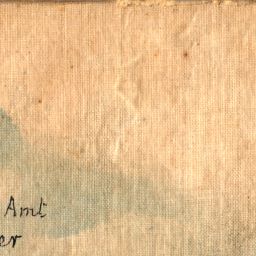 Amt
er